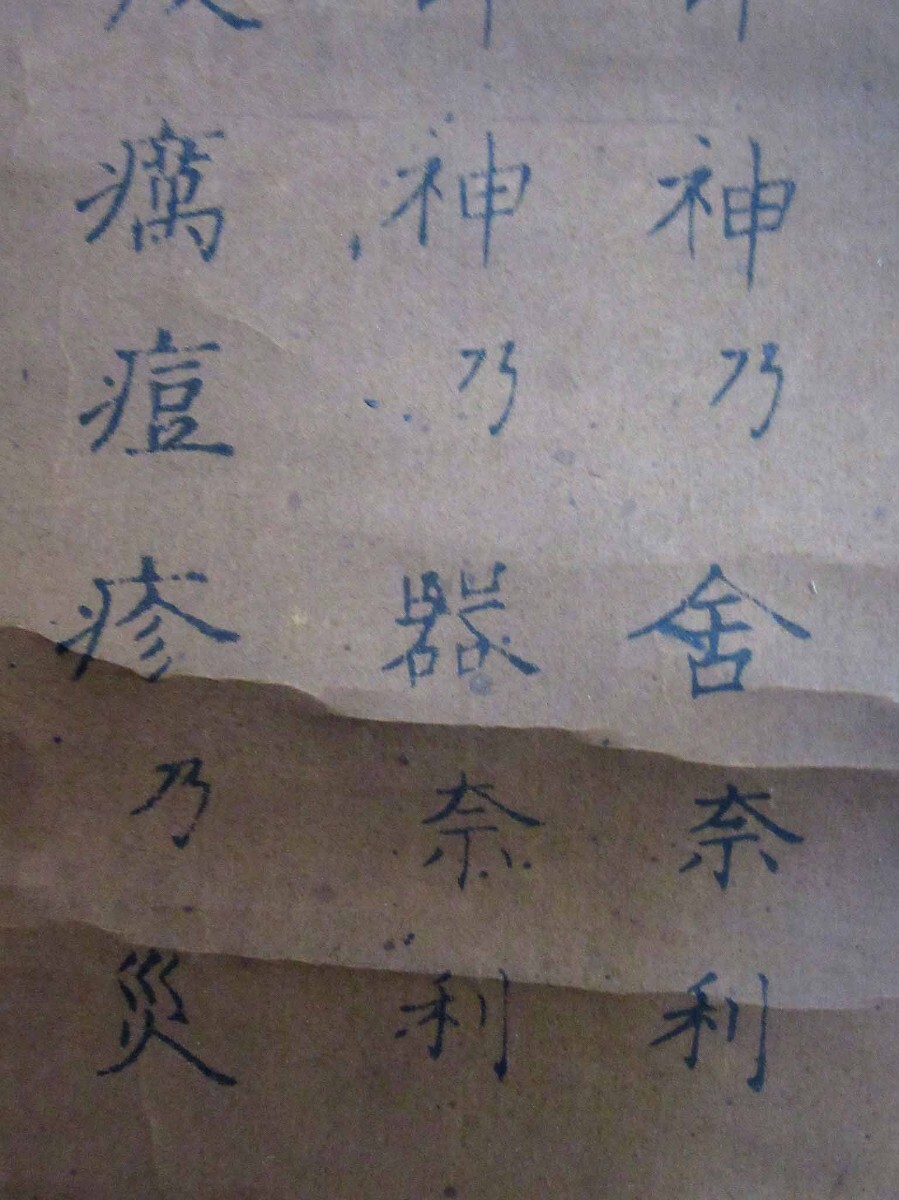 神乃舍奈利
神乃器奈利
癘痘疹乃災